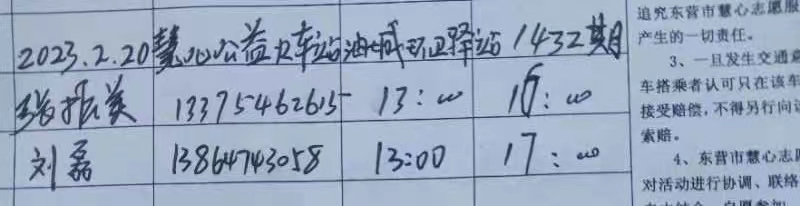 2023.2.20慧心公益火车站油城环卫驿站1432期
张振美 13375462615 13:00 16:00
刘磊 13864743058 13:00 17:00
追究东营市慧心志愿服
产生的一切责任。
3、一旦发生交通意
车搭乘者认可只在该车
接受赔偿，不得另行向
索赔。
4、东营市慧心志愿
对活动进行协调、联络